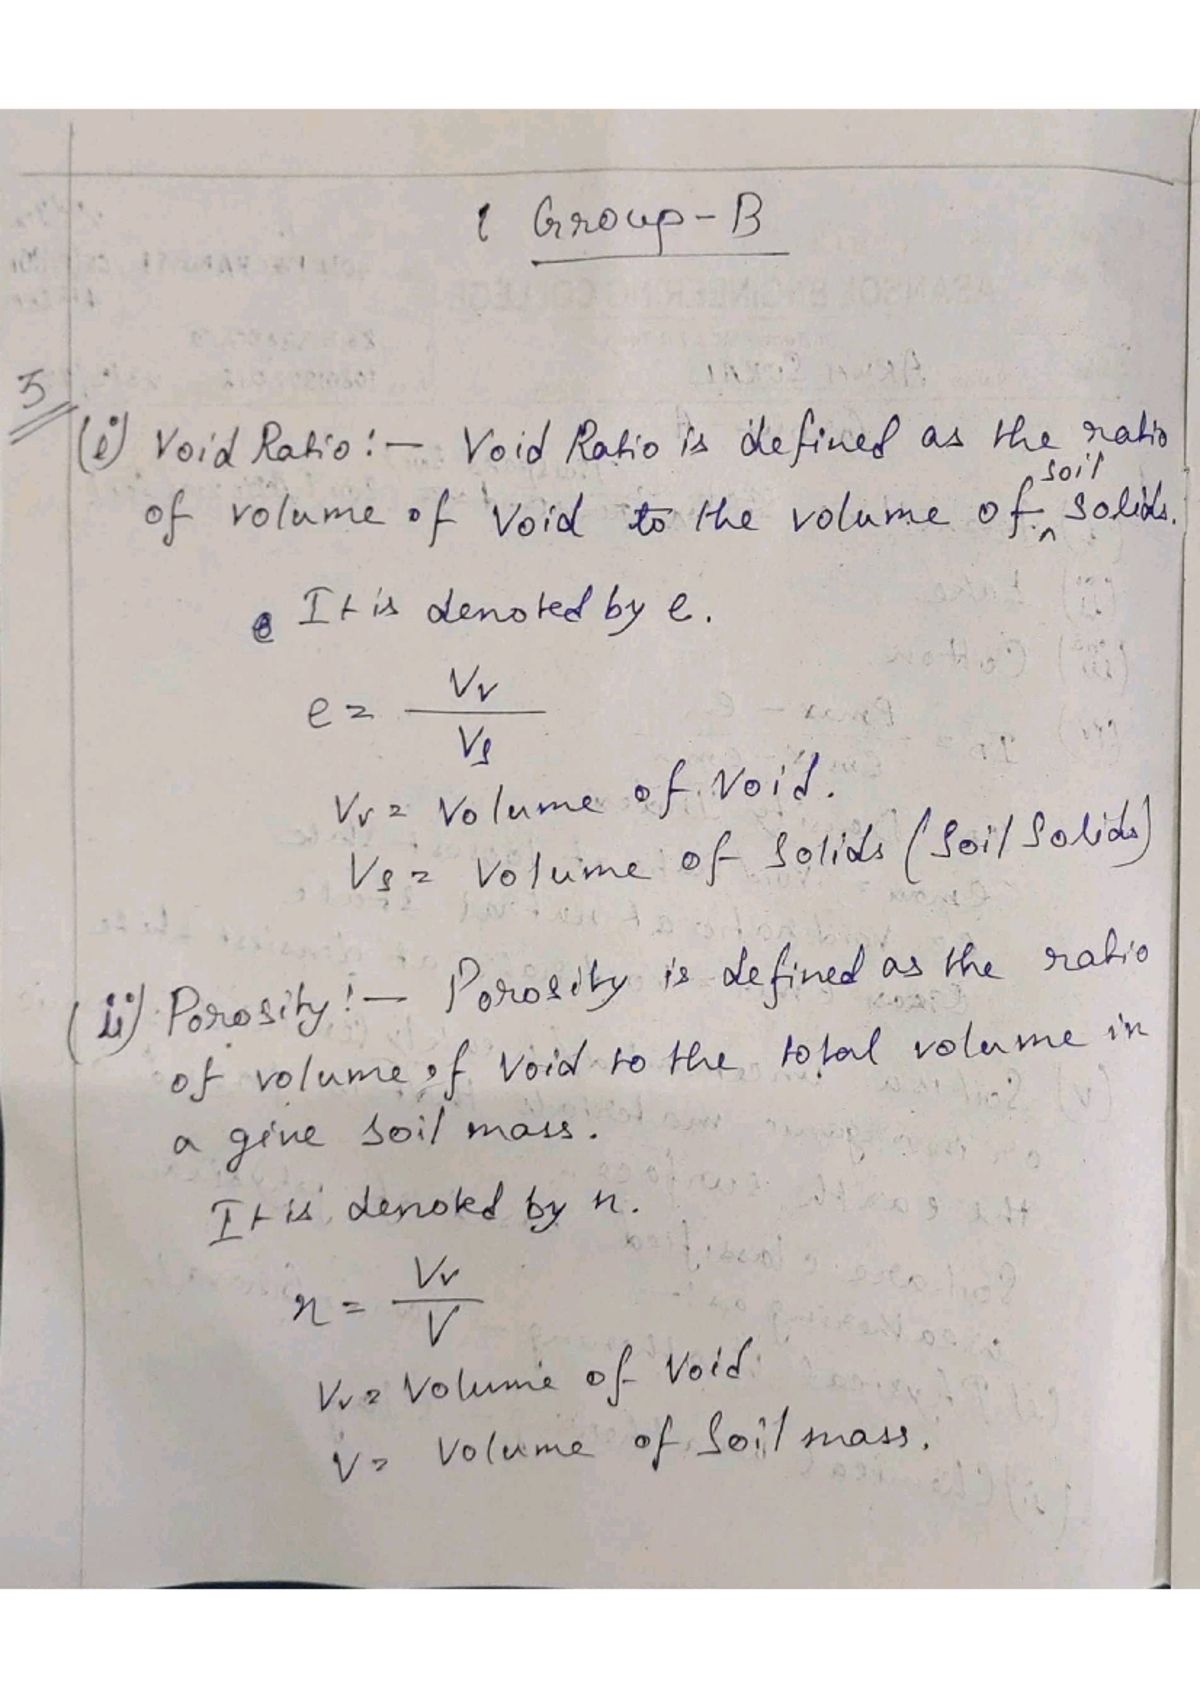 Group-B
5
(i) Void Ratio:— Void Ratio is defined as the ratio
of volume of void to the volume of soil solids.
It is denoted by e.
e = Vv / Vs
Vv = Volume of void.
Vs = Volume of solids (Soil Solids)
(ii) Porosity:— Porosity is defined as the ratio
of volume of void to the total volume in
a give soil mass.
It is denoted by n.
n = Vv / V
Vv = Volume of void
V = Volume of Soil mass.